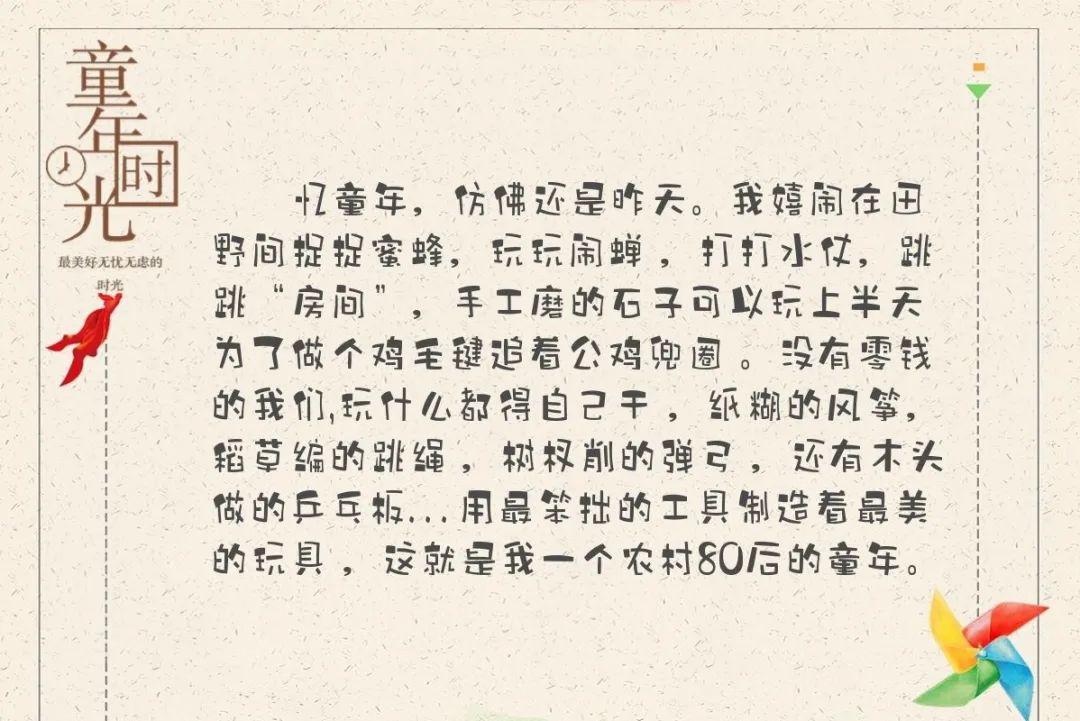 童年时光
最美好无忧无虑的
时光
忆童年，仿佛还是昨天。我嬉闹在田
野间捉捉蜜蜂，玩玩闹蝉，打打水仗，跳
跳“房间”，手工磨的石子可以玩上半天
为了做个鸡毛毽追着公鸡兜圈。没有零钱
的我们,玩什么都得自己干，纸糊的风筝，
稻草编的跳绳，树杈削的弹弓，还有木头
做的乒乓板...用最笨拙的工具制造着最美
的玩具，这就是我一个农村80后的童年。